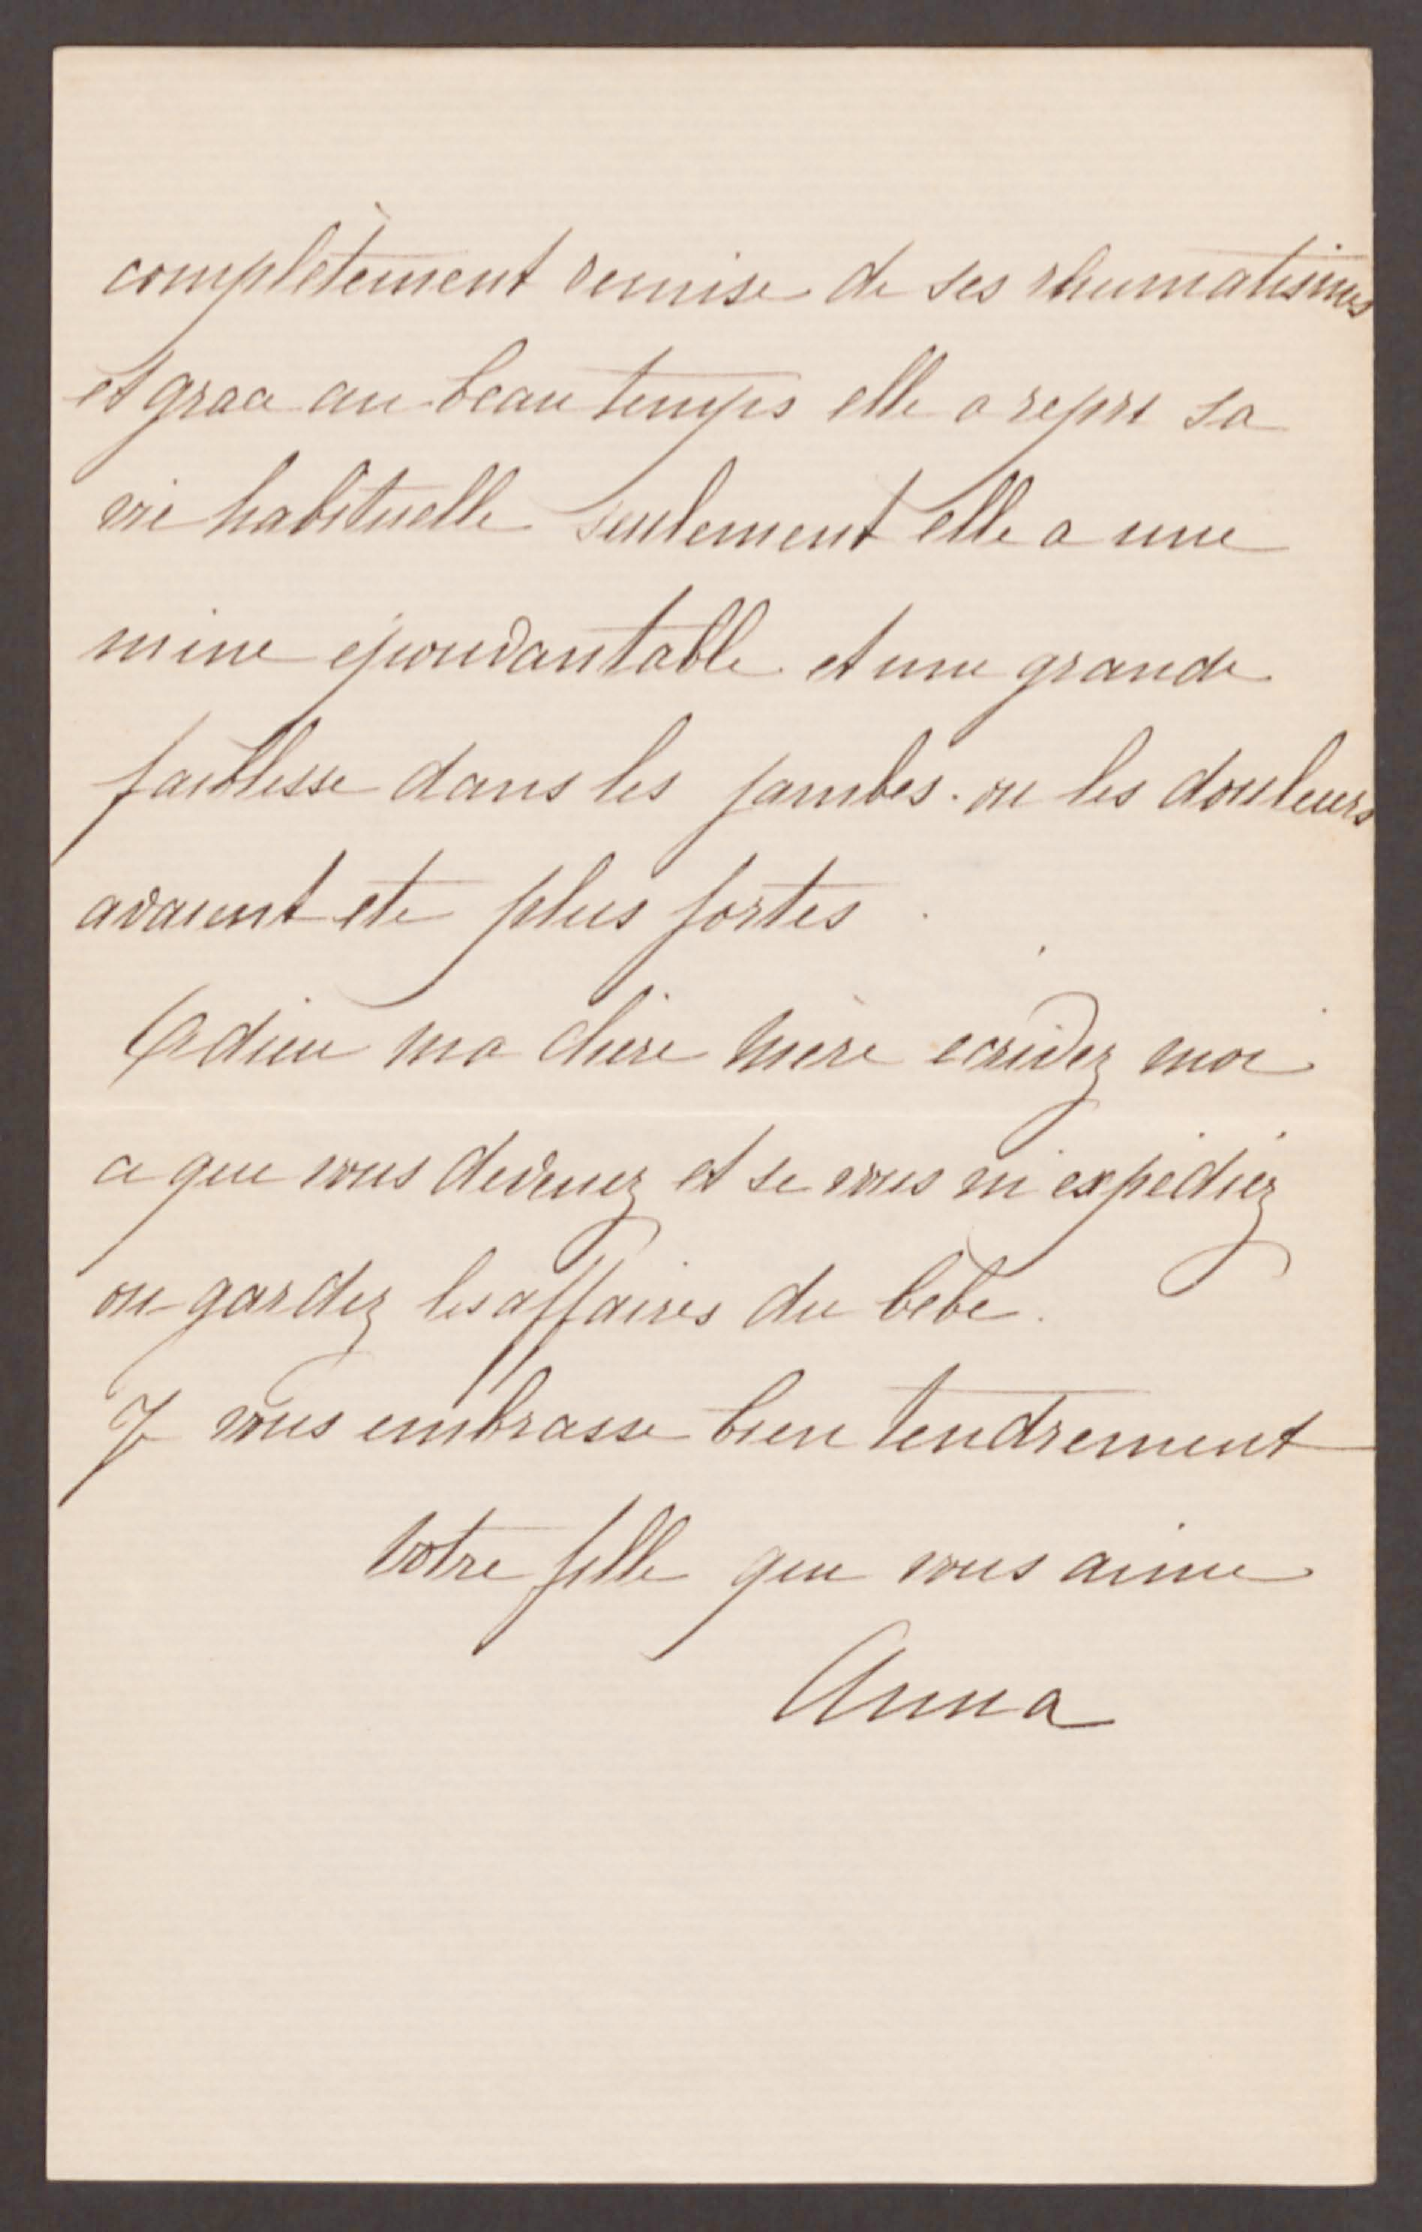 complètement remise de ses rhumatismes
et grace au beau temps elle a repri sa
vie habituelle seulement elle a une
mine epouvantable et une grande
faiblesse dans les jambes. ou les douleurs
avaient ete plus fortes.
Adieu ma chère mère ecrivez moi
ce que vous devenez et si vous m'expédiez
ou gardez les affaires du bébé.
Je vous embrasse bien tendrement
Votre fille qui vous aime
Anna